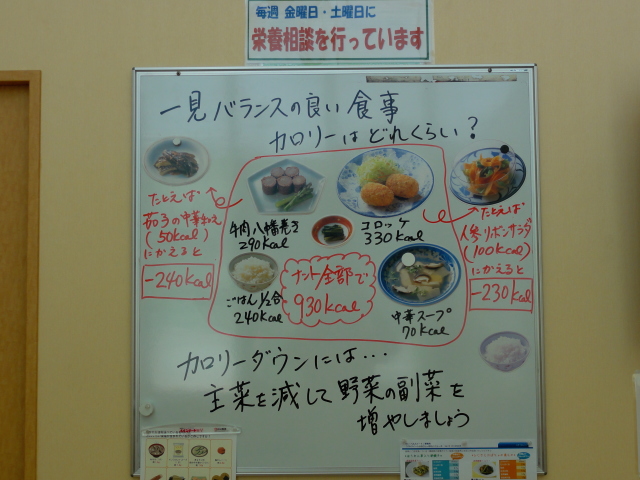 毎週 金曜日・土曜日に
栄養相談を行っています
一見バランスの良い食事
カロリーはどれくらい？
たとえば
茄子の中華和え
(50kcal)
にかえると
-240kcal
牛肉八幡巻き
290kcal
コロッケ
330kcal
たとえば
人参リボンサラダ
(100kcal)
にかえると
-230kcal
ごはん1/2合
240kcal
ナント全部で
930kcal
中華スープ
70kcal
カロリーダウンには…
主菜を減して野菜の副菜を
増やしましょう